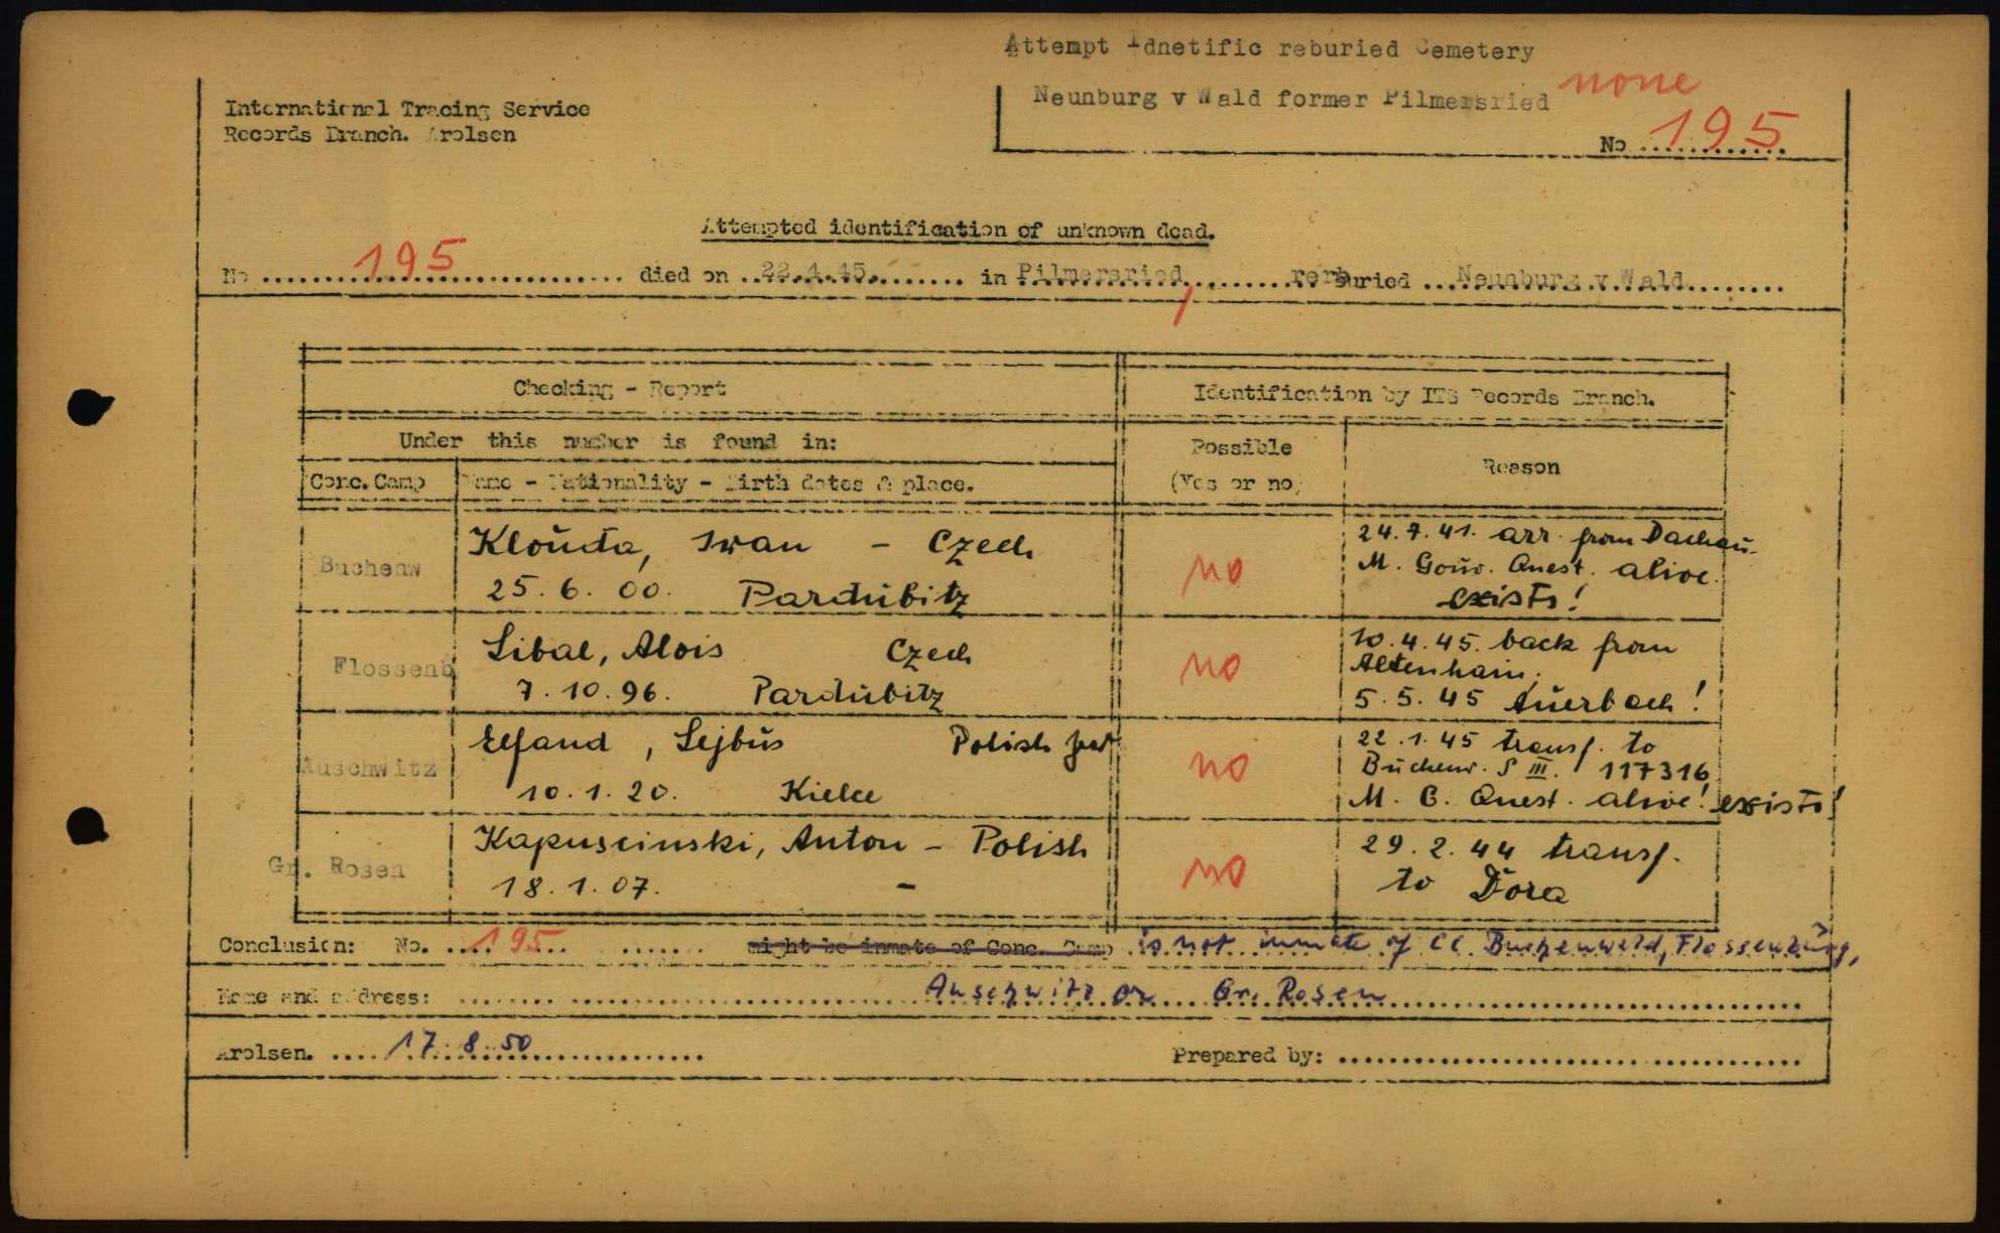 Attempt Idnetific reburied Cemetery
none
Neunburg v Wald former Pilmersried
International Tracing Service
Records Branch. Arolsen
No 195
Attempted identification of unknown dead.
No 195 died on 22.4.45. in Pilmersried, rer buried Neunburg v Wald
Checking - Report
Identification by ITS Records Branch.
Under this number is found in:
Possible
(Yes or no)
Reason
Conc. Camp
Name - Nationality - Birth dates & place.
Buchenw
Kloúda, Iwan - Czech
25.6.00. Pardubitz
no
24.7.41. arr. from Dachau.
M. Gouv. Quest. alive.
exists!
Flossenb
Sibal, Alois Czech
7.10.96. Pardubitz
no
10.4.45. back from
Altenhain.
5.5.45 Auerbach!
Auschwitz
Elfand, Lejbus Polish
10.1.20. Kielce
no
22.1.45 transf. to
Buchenw. S III. 117316
M. G. Quest. alive! exists!
Gr. Rosen
Kapuscinski, Anton - Polish
18.1.07. -
no
29.2.44 transf.
to Dora
Conclusion: No. 195 might be inmate of Conc. Camp is not inmate of CC Buchenwald, Flossenbürg,
Name and address: Auschwitz or Gr. Rosen
Arolsen. 17.8.50
Prepared by: